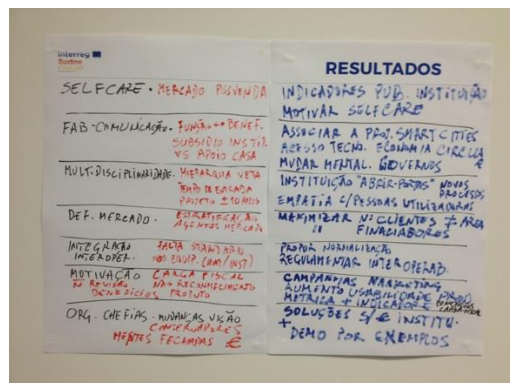 Interreg
Sudoe
SELFCARE • MERCADO POSVENDA
FAB-COMUNICAÇÃO. FUNÇÃO ↔ BENEF.
SUBSIDIO INSTIT.
VS APOIO CASA
MULTIDISCIPLINARIDADE. HIERARQUIA VETA
TEMPO DE ENTRADA
PROJETO ± 10 ANOS
DEF. MERCADO. ESTRATIFICAÇÃO
AGENTES MERCADO
INTEGRAÇÃO FALTA STANDARD
INTEROPER. NOS EQUIP.
MOTIVAÇÃO CARGA FISCAL
N REVISÃO NÃO RECONHECIMENTO
BENEFICIOS PRODUTO
ORG. CHEFIAS. MUDANÇAS VISÃO
CONSERVADORES
MENTES FECHADAS €
RESULTADOS
INDICADORES PUB. INSTITUIÇÃO
MOTIVAR SELFCARE
ASSOCIAR A PROJ. SMART CITIES
ACESSO TECNO. ECONOMIA CIRCULA
MUDAR MENTAL. GOVERNOS €
INSTITUIÇÃO "ABRIR-PORTAS" NOVOS
PROCESSOS
EMPATIA C/PESSOAS UTILIZADORAS
MAXIMIZAR Nº CLIENTES ≠ AREA
" FINACIADORES
PROPOR NORMALIZAÇÃO
REGULAMENTAR INTEROPERAB.
CAMPANHAS MARKETING
AUMENTO USABILIDADE PROD.
METRICA + INDICADORES
SOLUÇÕES S/€ INSTITU.
+
DEMO POR EXEMPLOS